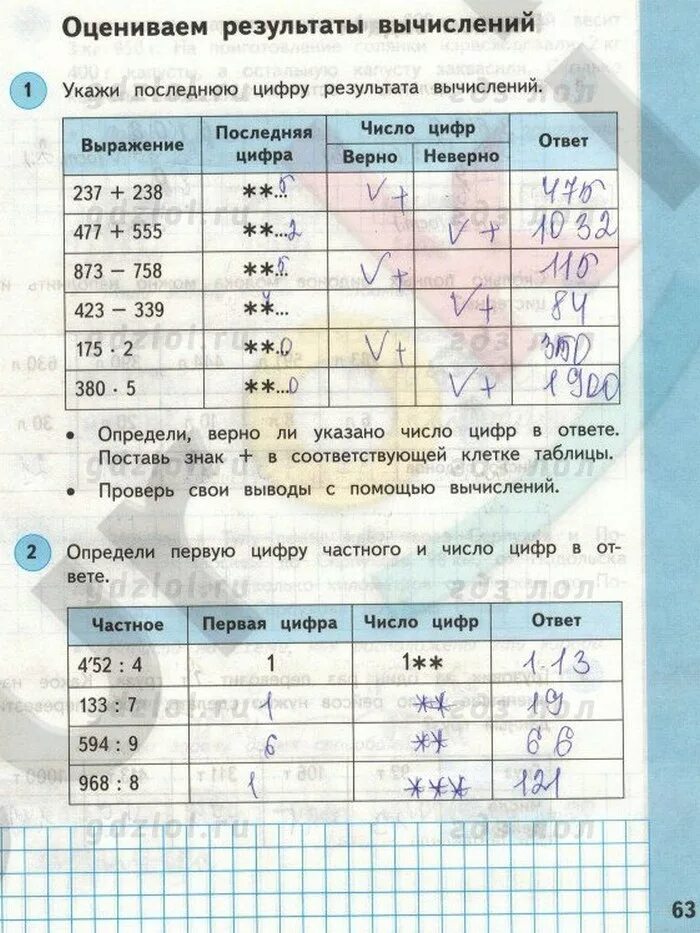 Оцениваем результаты вычислений
1 Укажи последнюю цифру результата вычислений.
Выражение Последняя цифра Число цифр Ответ
Верно Неверно
237 + 238 **...5 V + 475
477 + 555 **...2 V + 1032
873 − 758 **...5 V + 115
423 − 339 **...4 V + 84
175 · 2 **...0 V + 350
380 · 5 **...0 V + 1900
• Определи, верно ли указано число цифр в ответе.
Поставь знак + в соответствующей клетке таблицы.
• Проверь свои выводы с помощью вычислений.
2 Определи первую цифру частного и число цифр в от-
вете.
Частное Первая цифра Число цифр Ответ
4'52 : 4 1 1** 1·13
133 : 7 1 ** 19
594 : 9 6 ** 66
968 : 8 1 *** 121
gdzlol.ru гдз лол
63